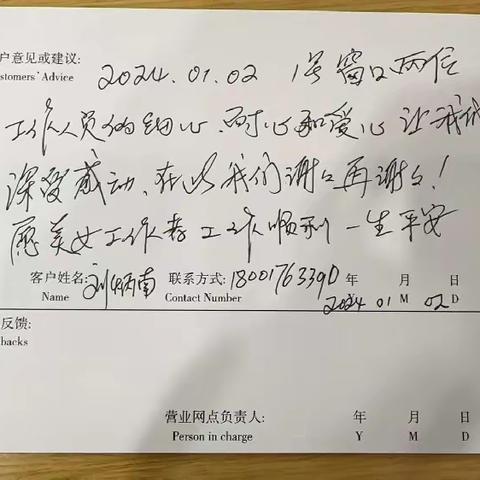 户意见或建议:
stomers' Advice
2024.01.02 1号窗口两位
工作人员的细心、耐心和爱心让我们
深受感动、在此我们谢谢再谢谢!
愿美女工作者工作顺利一生平安
客户姓名: 刘炳南 联系方式: 年 月 日
Name Contact Number 2024 01 M 02 D
反馈:
backs
营业网点负责人: 年 月 日
Person in charge Y M D